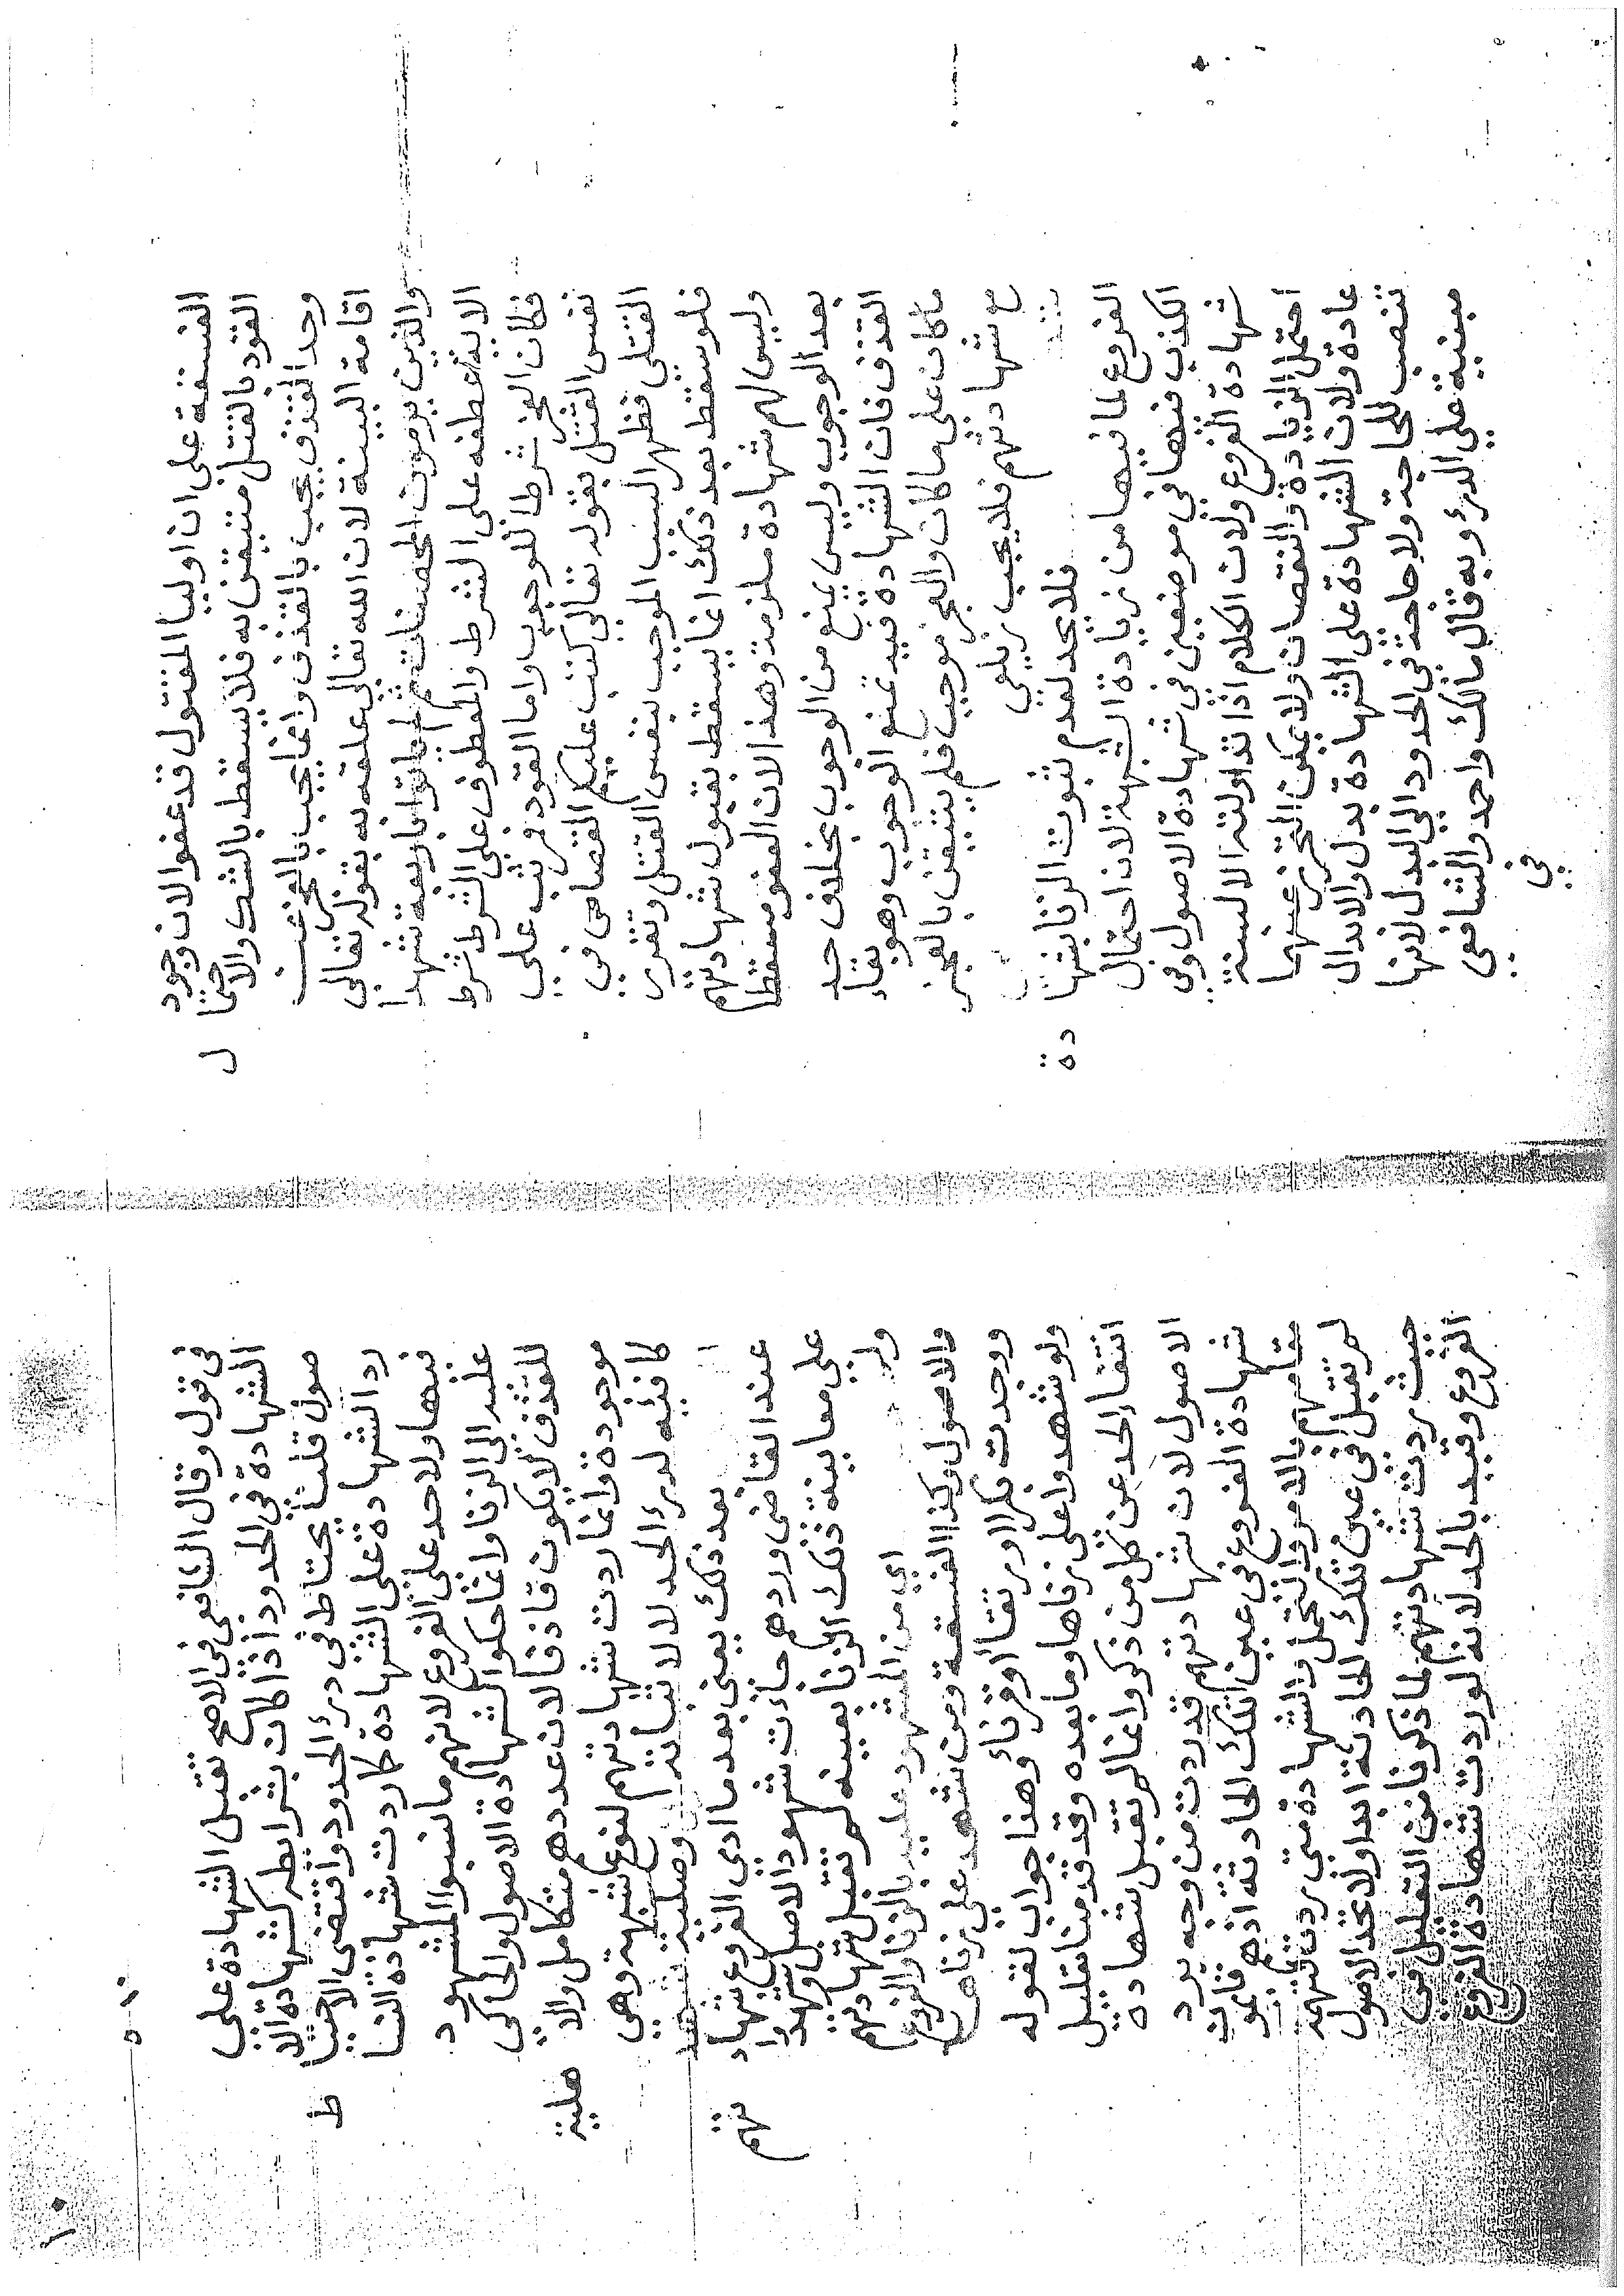 الفسقة على ان اوليا المقتول قد عفوا لان وجود
القود بالقتل متيقن به فلا يسقط بالشك والاحتما
ل
وحد القذف يجب بالقذف وانما يجب بالعجز عن
اقامة البينة لان الله تعالى علقه به بقوله تعالى
والذين يرمون المحصنات ثم لم ياتوا باربعة شهدا
الاية عطفه على الشرط والمعطوف على الشرط شرط
فكان العجز شرطا للوجوب واما القود فمرتب على
نفس القتل بقوله تعالى كتب عليكم القصاص في
القتلى فظهر السبب الموجب بنفس القتل وتقرر
فلو سقط بعد ذلك انما يسقط بقبول شهادتهم
وليس لهم شهادة ملزمة وهذا لان العفو مسقط
بعد الوجوب وليس يمنع من الوجوب بخلاف حد
القذف فان الشهادة فيه تمنع الوجوب وهو بقاء
ماكان على ما كان والعجز موجب فلم يتيقن بالعجز
مع شهادتهم فلا يجب زيلعي
فلا يحد لعدم ثبوت الزنا بشها
دة
الفروع لما فيها من زيادة الشبهة لان احتمال
الكذب فيها في موضعين في شهادة الاصول وفي
شهادة الفروع ولان الكلام اذا تداولته الالسنة
احتمل الزيادة والنقصان ولا يمكن التحرز عنهما
عادة ولان الشهادة على الشهادة بدل والابدال
تنصب للحاجة ولا حاجة في الحدود الى البدل لانها
مبنية على الدرء وبه قال مالك واحمد والشافعي
في
في قول وقال الشافعي في الاصح تقبل الشهادة على
الشهادة في الحدود اذا كان بشرايط كشهادة الا
صول قلنا يحتاط في درء الحدود واقتضى الاحتيا
ط
رد الشهادة على الشهادة كا ردت شهادة النسا
فيها ولا حد على الفروع لانهم ما نسبوا المشهود
عليه الى الزنا وانما حكوا شهادة الاصول والحاكي
للقذف لا يكون قاذفا لان عددهم متكامل والا
هلية
موجودة وانما ردت شهادتهم لنوع شبهة وهي
كافية لدرء الحد لا لاثباته
بعد ذلك يعني بعد ما ادى الفروع شهاد
تهم
عند القاضي وردهم جاءت شهود الاصل وشهدوا
على معاينة ذلك الزنا بعينه لم تقبل شهادتهم
اي من المشهود عليه بالزنا والفروع
والاصول وكذا الفسقة ومن شهد على زناه
ووجدت بكرا او رتقا او قرناء وهنا جواب لقوله
ولو شهدوا على زناها وما بعده وقد قدمنا تعليل
انتفاء الحد عن كل من ذكر وانما لم تقبل شهادة
الاصول لان شهادتهم قد ردت من وجه برد
شهادة الفروع في عين تلك الحادثة اذ هم قائمون
مقامهم بالامر والتحمل والشهادة متى ردت لتهمة
لم تقبل في عين تلك الحادثة ابدا ولا تحد الاصول
حيث ردت شهادتهم لما ذكرنا من التعليل في
الفروع وقيد بالحد لانه لو ردت شهادة الفروع